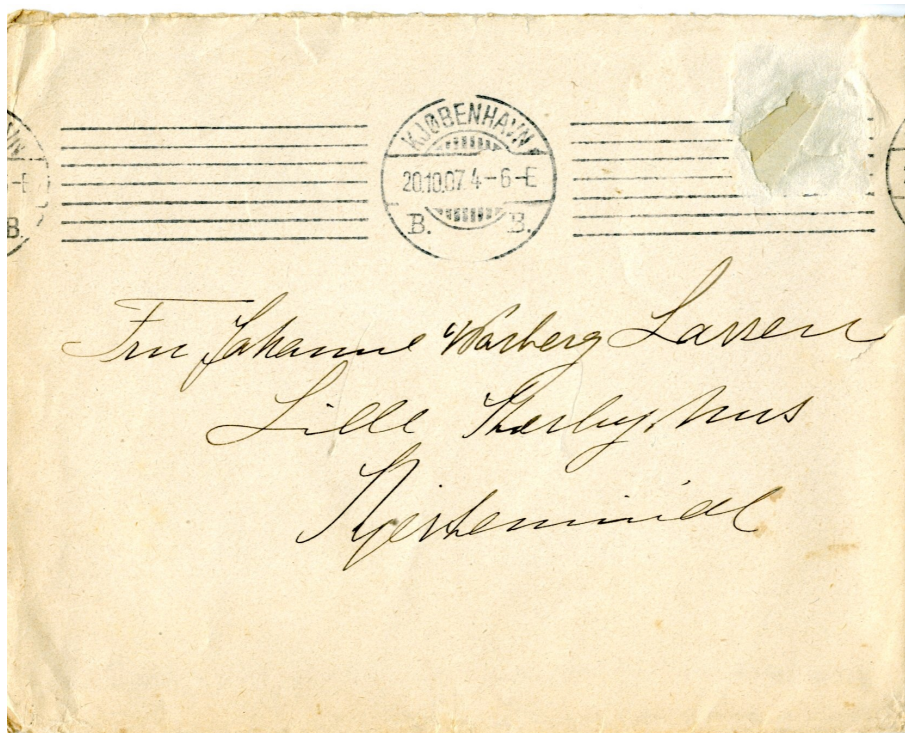 KJØBENHAVN
20.10.07. 4-6-E
B. B.
Fru Johanne Warberg Larsen
Lille Kærbyhus
Kjerteminde